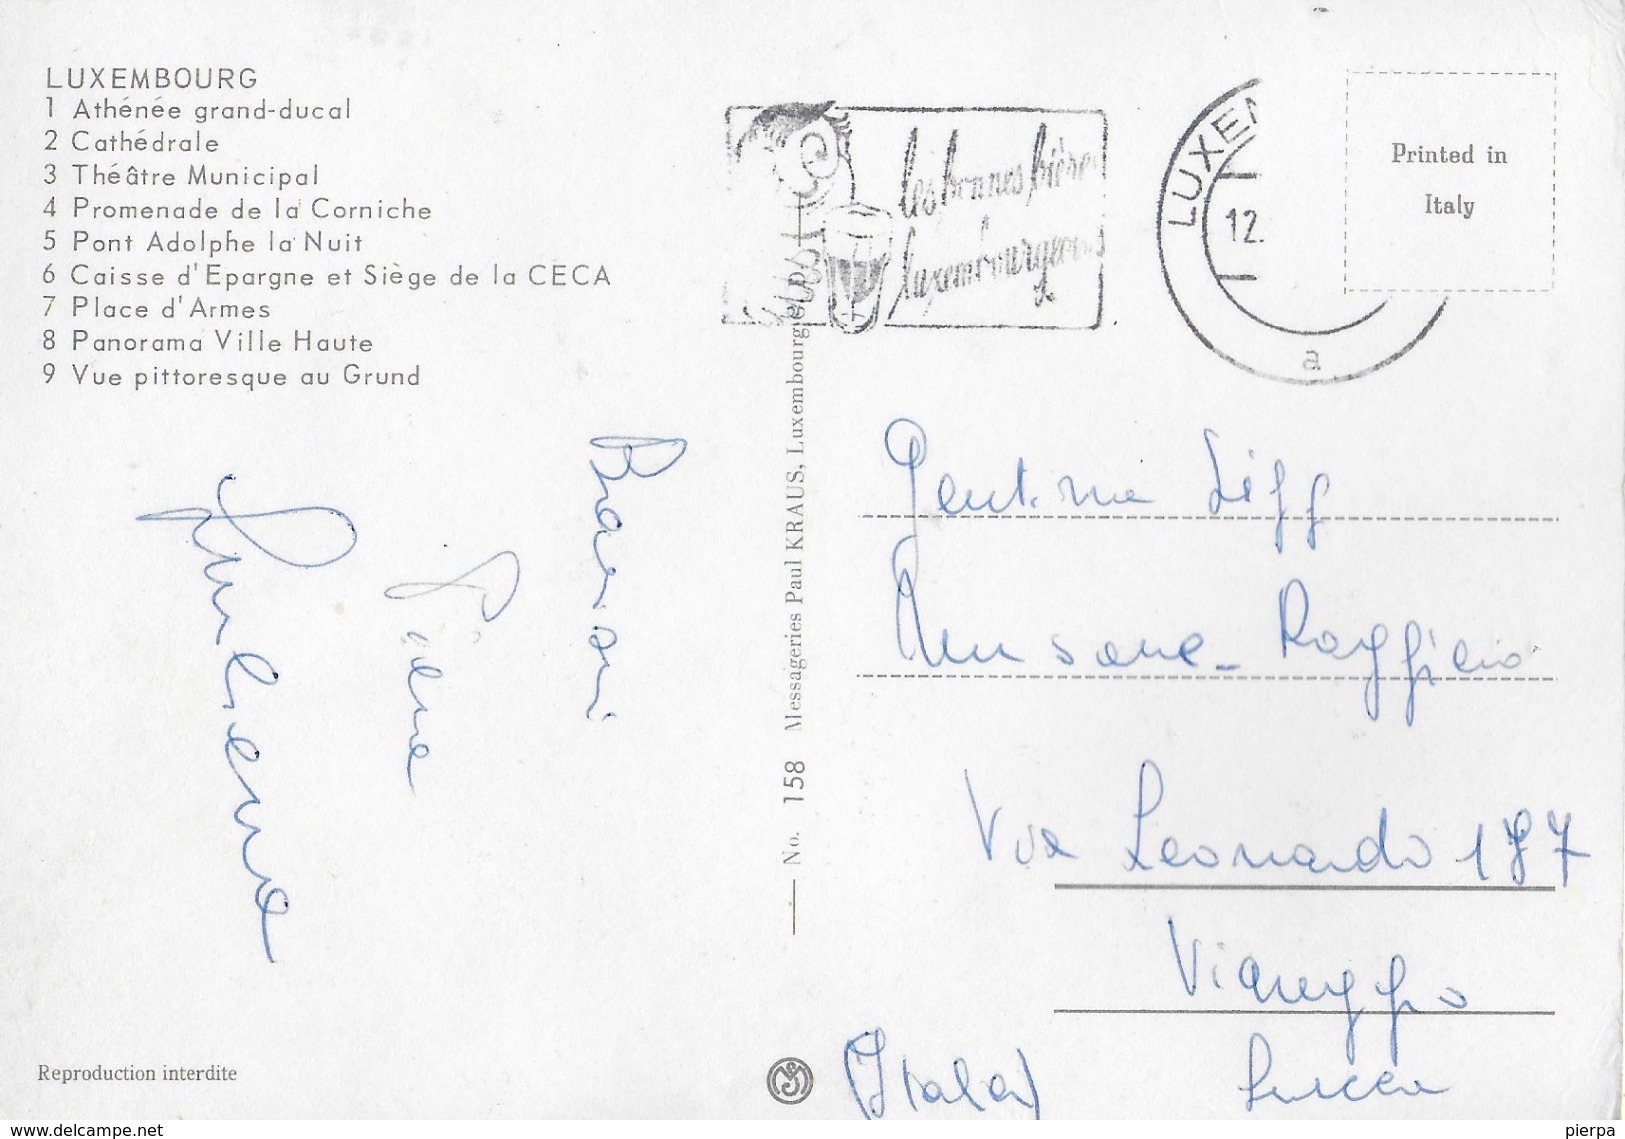 LUXEMBOURG
1 Athénée grand-ducal
2 Cathédrale
3 Théâtre Municipal
4 Promenade de la Corniche
5 Pont Adolphe la Nuit
6 Caisse d'Epargne et Siège de la CECA
7 Place d'Armes
8 Panorama Ville Haute
9 Vue pittoresque au Grund
les bonnes bières
luxembourgeoises
LUXEM
12.
a
Printed in
Italy
No. 158 Messageries Paul KRAUS, Luxembourg
Baci
Gent.ma
Raffficio
Via Leonardo 177
Viareggio
Lucca
(Italia)
Reproduction interdite
www.delcampe.net
pierpa